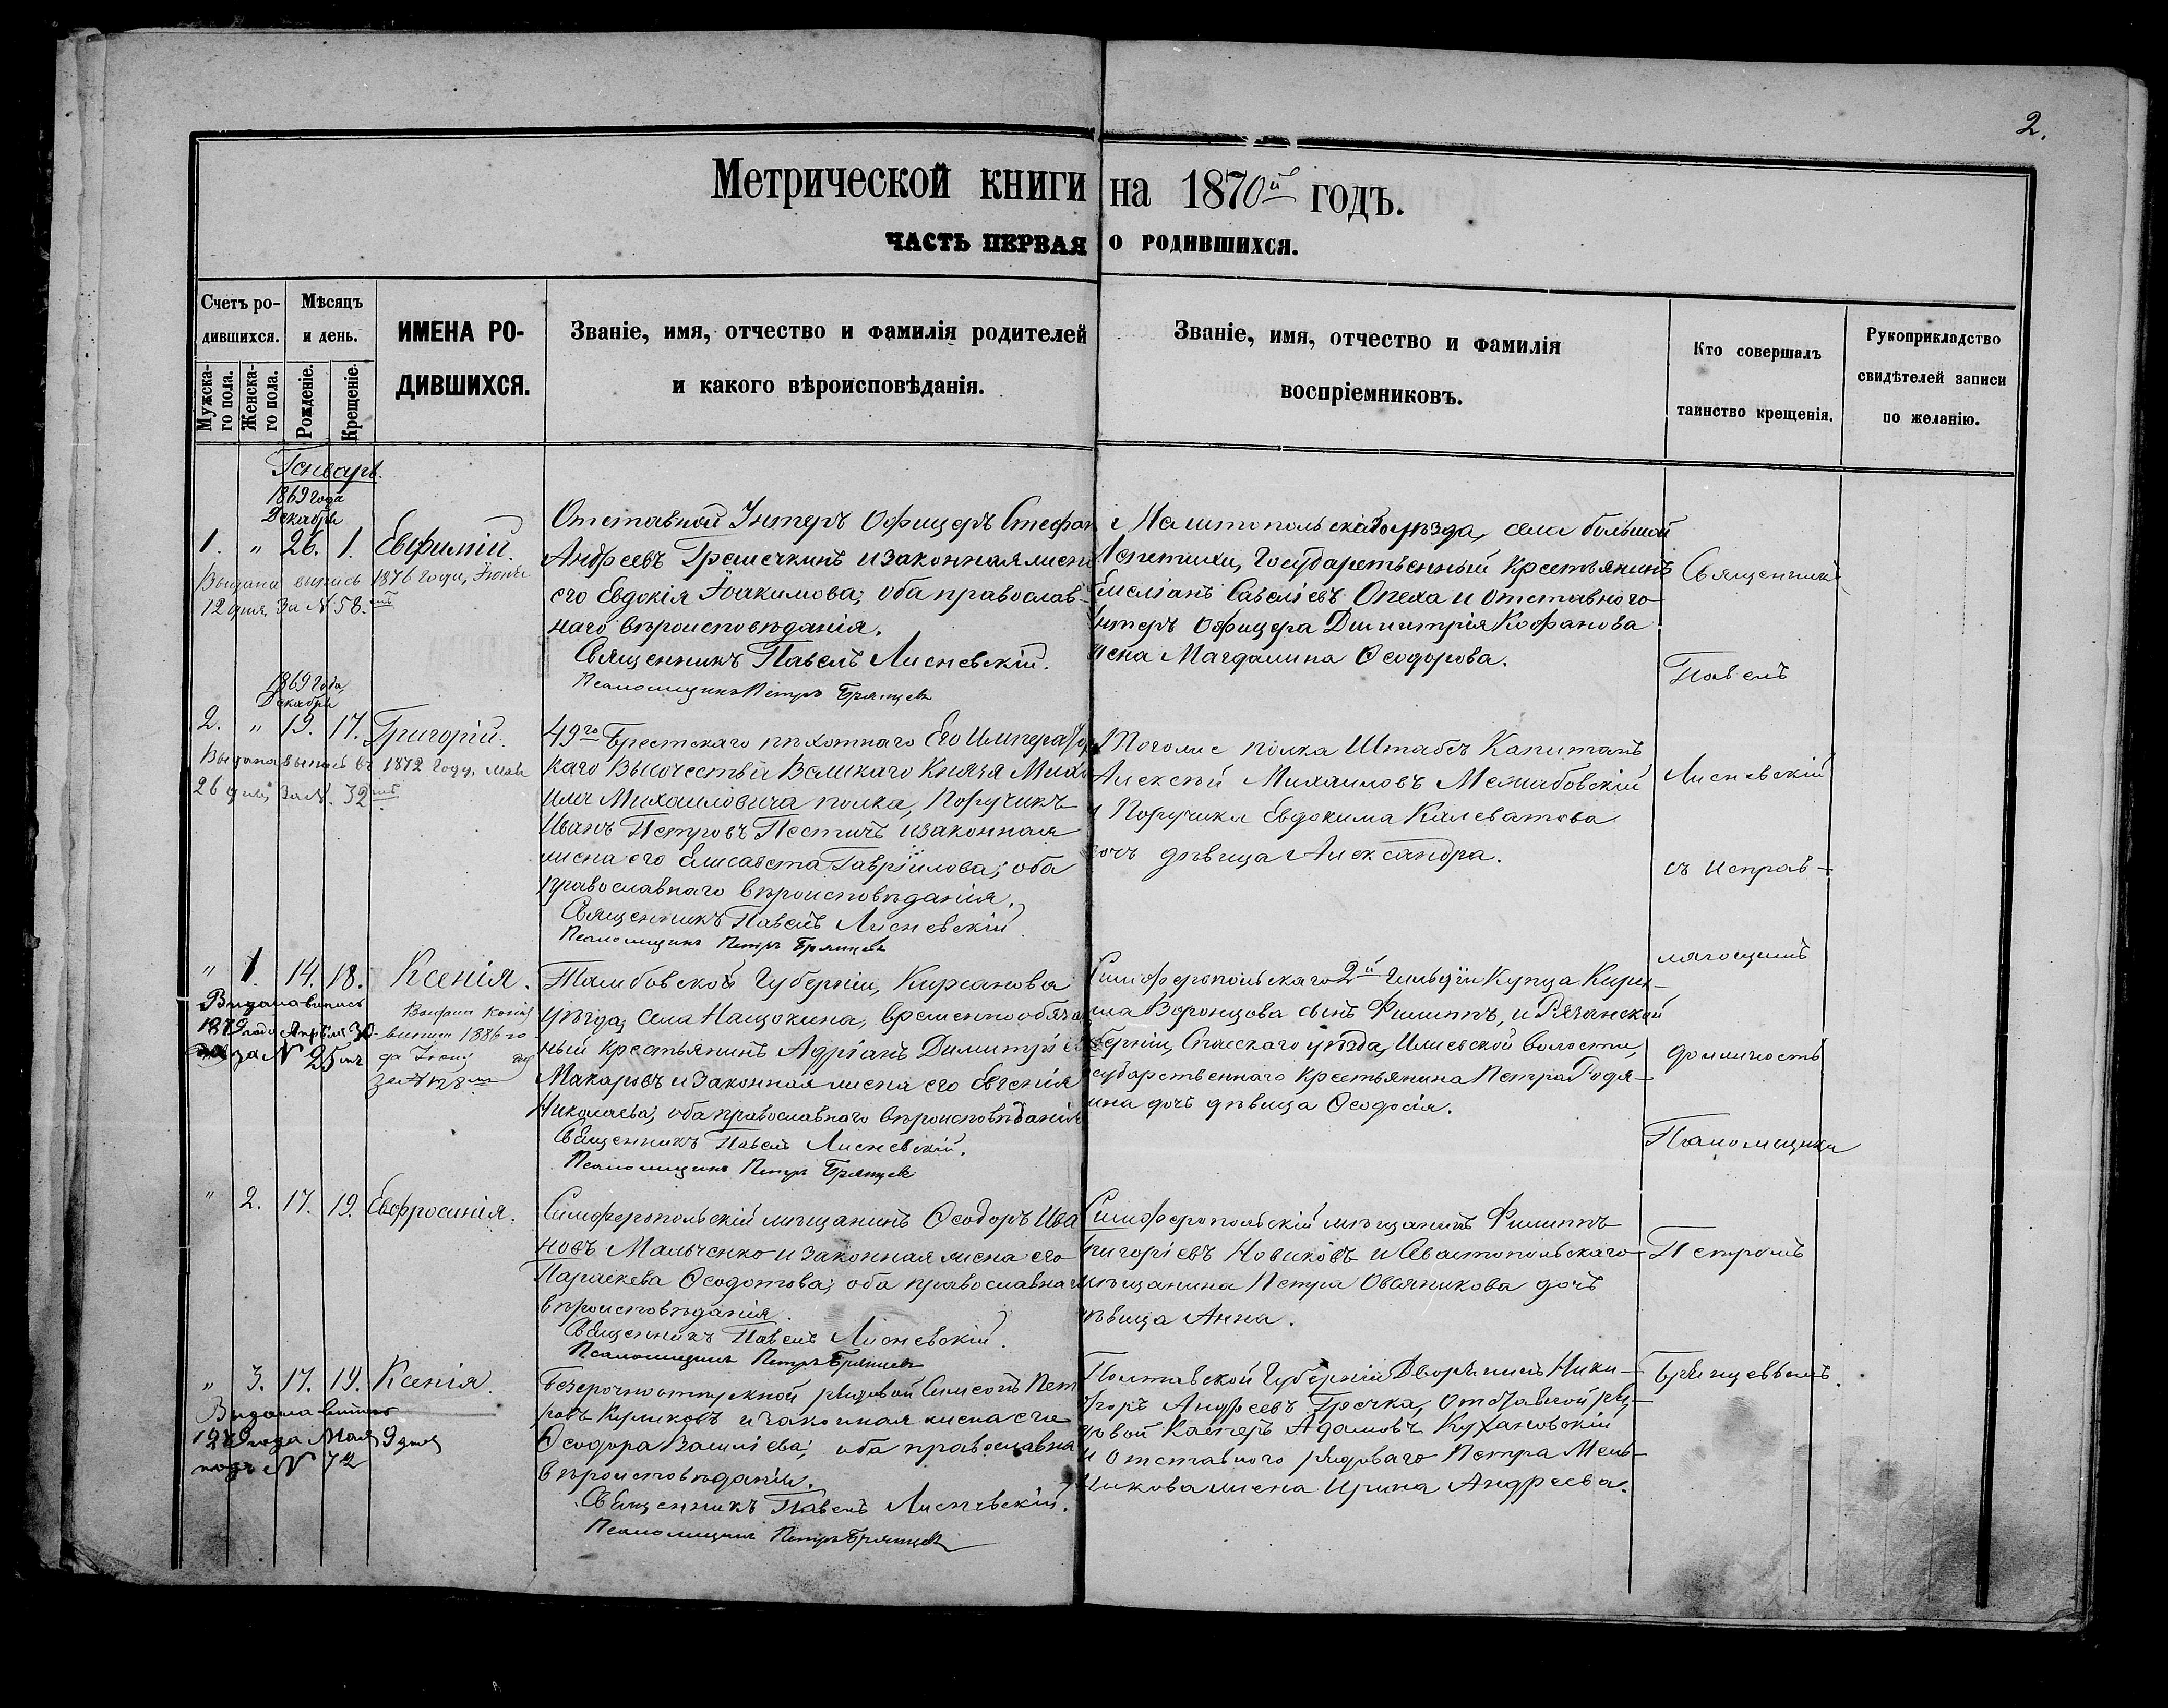 2.
Метрической книги на 1870й годъ.
ЧАСТЬ ПЕРВАЯ О РОДИВШИХСЯ.
Счетъ ро-
дившихся.
Мужска-
го пола.
Женска-
го пола.
Мѣсяцъ
и день.
Рожденіе.
Крещеніе.
ИМЕНА РО-
ДИВШИХСЯ.
Званіе, имя, отчество и фамилія родителей
и какого вѣроисповѣданія.
Званіе, имя, отчество и фамилія
воспріемниковъ.
Кто совершалъ
таинство крещенія.
Рукоприкладство
свидѣтелей записи
по желанію.
Январь.
1869 года
Декабря
1. " 26. 1. Евфимій.
Выдана выпись 1876 года, Іюня
12 дня, за N 58.
Отставной Унтеръ Офицеръ Стефан
Андреевъ Гремечкинъ и законная жена
его Евдокія Іоакимова; оба православ-
наго вѣроисповѣданія.
Священникъ Павелъ Лисневскій.
Псаломщикъ Петръ Брянцевъ
Мелитопольскаго уѣзда, села большой
Лепетихи, Государственный крестьянинъ
Емеліанъ Савеліевъ Опеха и отставного
Унтеръ Офицера Димитрія Кофанова
жена Магдалина Ѳеодорова.
1869 года,
Декабря
2. " 19. 17. Григорій.
Выдана выпись въ 1872 году, мая
26 дня, за N. 32
49го Брестскаго пѣхотнаго Его Император
каго Высочества Великаго Князя Миха
ила Михаиловича полка, Поручикъ
Иванъ Петровъ Пестичъ и законная
жена его Елисавета Гавріилова; оба
православнаго вѣроисповѣданія.
Священникъ Павелъ Лисневскій.
Псаломщикъ Петръ Брянцевъ
Тогоже полка Штабсъ Капитанъ
Алексѣй Михаиловъ
и Поручика Евдокима Калеватова
дочь дѣвица Александра.
" 1. 14. 18. Ксенія.
Выдана выпись
1879 года Апрѣля 30
за N 25
Выдана копія
выписи 1886 го
да
Тамбовской Губерніи, Кирсанова
уѣзда, села Нащокина, временно обяза
ный крестьянинъ Адріанъ Димитріев
Макаровъ и законная жена его Евгенія
Николаева; оба православнаго вѣроисповѣданія
Священникъ Павелъ Лисневскій.
Псаломщикъ Петръ Брянцевъ
Симферопольскаго 2й гильдіи Купца Кири-
ла Воронцова сынъ Филиппъ, и Рязанской
берніи, Спасскаго уѣзда, Ижевской волости,
сударственнаго крестьянина Петра Родя-
ина дочь дѣвица Ѳеодосія.
" 2. 17. 19. Евфросинія.
Симферопольскій мѣщанинъ Ѳеодоръ Ива
новъ Мальченко и законная жена его
Параскева Ѳеодотова; оба православнаг
вѣроисповѣданія.
Священникъ Павелъ Лисневскій.
Псаломщикъ Петръ Брянцевъ
Симферопольскій мѣщанинъ Филиппъ
Григоріевъ Новиковъ и Севастопольскаго
мѣщанина Петра Овсяникова дочь
дѣвица Анна.
" 3. 17. 19. Ксенія.
Выдана выпись
1879 года Мая 9 дня
подъ N 72
Безсрочноотпускной рядовой Симеонъ Пет
ровъ Куликовъ и законная жена его
Ѳеодора Василіева; оба православна
вѣроисповѣданія.
Священникъ Павелъ Лисневскій.
Псаломщикъ Петръ Брянцевъ
Полтавской Губерніи Дворянинъ Ники-
форъ Андреевъ Гречка, отставной ря-
довой Касперъ Адамовъ
и отставного рядоваго Петра Мель-
никова жена Ирина Андреева.
Священникъ
Павелъ
Лисневскій
съ исправ-
ляющимъ
должность
Псаломщика
Петромъ
Брянцевымъ.